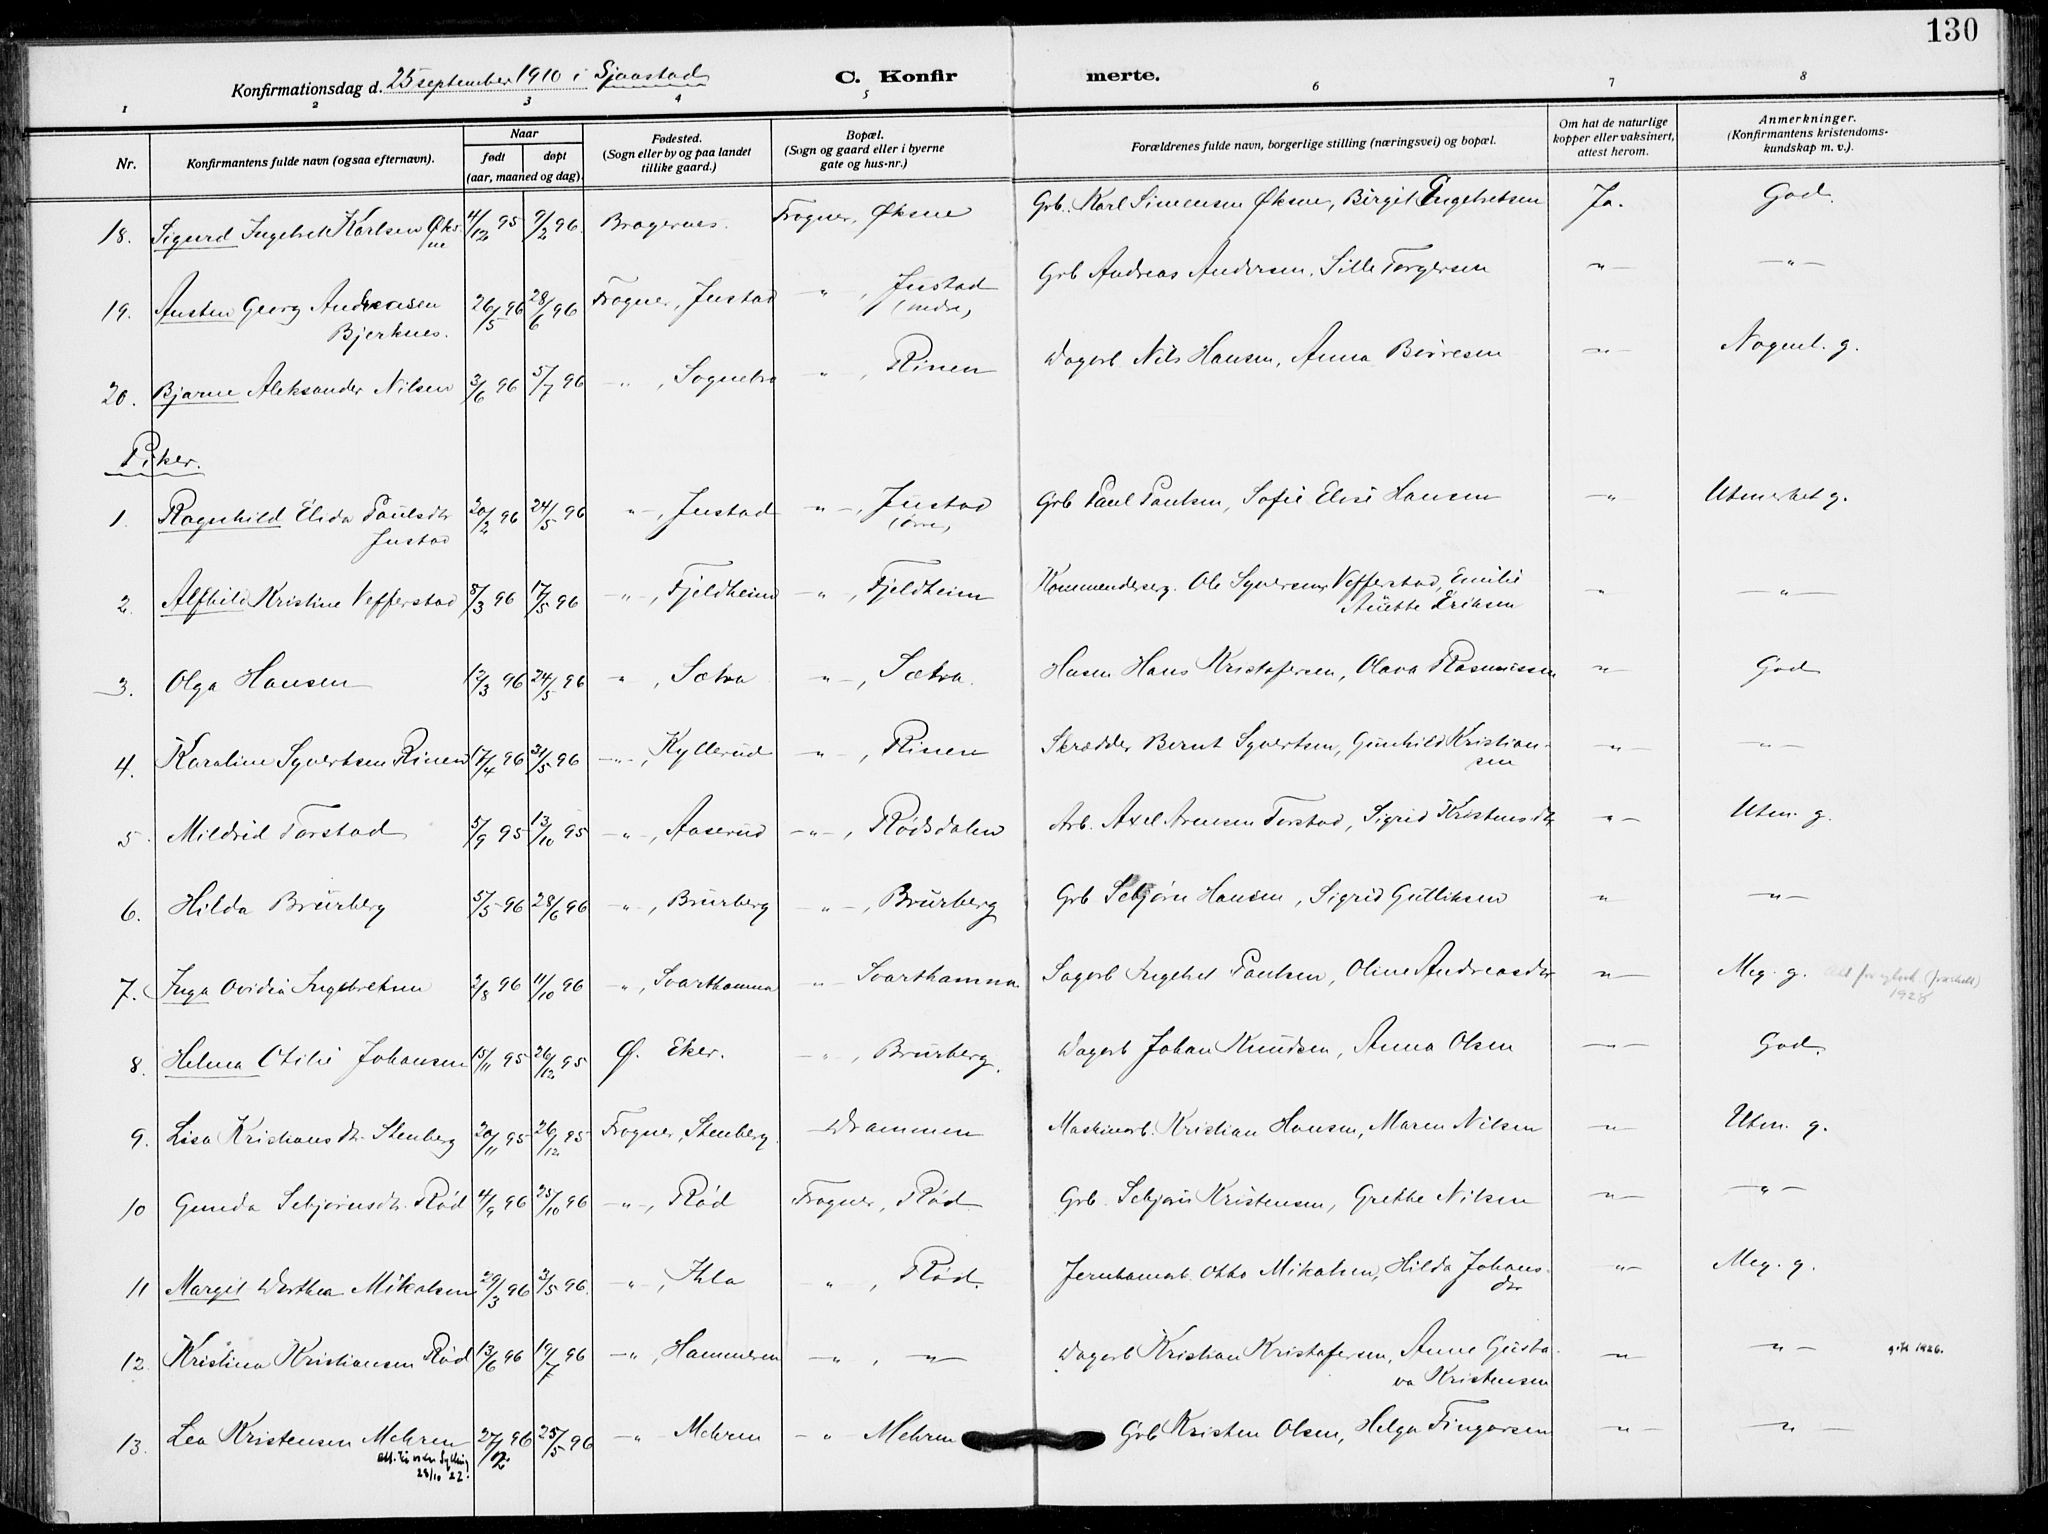 130
Konfirmationsdag d. 25 september 1910 i Sjaastad C. Konfirmerte.
1 2 3 4 5 6 7 8
Nr. Konfirmantens fulde navn (ogsaa efternavn). Naar født døpt (aar, maaned og dag). Fødested. (Sogn eller by og paa landet tillike gaard.) Bopæl. (Sogn og gaard eller i byerne gate og hus-nr.) Forældrenes fulde navn, borgerlige stilling (næringsvei) og bopæl. Om hat de naturlige kopper eller vaksinert, attest herom. Anmerkninger. (Konfirmantens kristendoms-kundskap m. v.).
18. Sigurd Ingebret Karlsen Øksne 4/12 95 9/2 96. Bragernes. Frogner, Øksne Grb. Karl Simensen Øksne, Birgit Ingebretsen Ja. God.
19. Austen Georg Andreasen Bjerknes. 26/5 96 28/6 96 Frogner, Justad -"-, Justad (nedre) Grb Andreas Andersen, Sille Torgersen -"- -"-
20. Bjarne Aleksander Nilsen 3/6 96 5/7 96 -"-, Sognebra -"-, Rinen Dagarb Nils Hansen, Anna Børresen -"- Nogenl. g.
Piker.
1. Ragnhild Elida Paulsdtr Justad 20/2 96 24/5 96 -"-, Justad -"-, Justad (øvre) Grb Paul Paulsen, Sofie Elise Hansen -"- Utmerket g.
2. Alfhild Kristine Vefferstad 8/3 96 17/5 96 -"-, Fjeldheim -"-, Fjeldheim Kommenderserg. Ole Syversen Vefferstad, Emilie Anette Eriksen " -"-
3. Olga Hansen 12/3 96 24/5 96 ", Sætra -"-, Sætra. Husm Hans Kristofersen, Olava Rasmussen "- God
4. Karoline Syvertsen Rinen 17/4 96 31/5 96 -"-, Kyllerud -"-, Rinen Skrædder Bernt Syvertsen, Gunhild Kristiansen -"- -"-
5. Mildrid Torstad 5/9 95 13/10 95 -"-, Aaserud -"-, Rødsdalen Arb. Axel Arensen Torstad, Sigrid Kristensdtr "- Utm. g.
6. Hilda Brurberg 5/5 96 28/6 96 -"-, Brurberg -"-, Brurberg Grb Sebjørn Hansen, Sigrid Gulliksen " -"-
7. Inga Ovidia Ingebretsen 2/8 96 11/10 96 "-, Svarthamna -"- Svarthamna Sagarb Ingebret Paulsen, Oline Andreasdtr "- Meg. g. 1928
8. Helma Otilie Johansen 15/11 95 26/12 95 Ø. Eker. -"-, Brurberg. Dagarb Johan Knudsen, Anna Olsen -"- God.
9. Lisa Kristiansdtr. Stenberg 20/11 95 26/12 95 Frogner, Stenberg. Drammen Maskinarb. Kristian Hansen, Maren Nilsen -"- Utm. g.
10 Gunda Sebjørnsdtr. Rød 4/9 96 25/10 96 -"-, Rød Frogner, Rød Grb. Sebjørn Kristensen, Grethe Nilsen "- -"-
11 Margit Dorthea Mikalsen 29/3 96 3/5 96. "-, Ihla ", Rød. Jernbanearb. Otto Mikalsen, Hilda Johansdtr "- Meg. g.
12. Kristina Kristiansen Rød 13/6 96 19/7 96 -"-, Hammeren -"-, -"- Dagarb Kristian Kristofersen, Anne Gustava Kristensen -"- "- gift 1926.
13. Lea Kristensen Mehren 27/12 96 25/5 96 -"- Mehren -"- Mehren Grb Kristen Olsen, Helga Fingarsen "- "-
28/10 22.